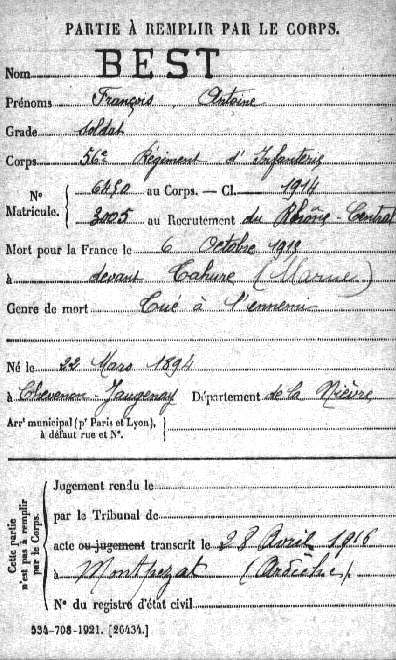 PARTIE À REMPLIR PAR LE CORPS.
Nom BEST
Prénoms François Antoine
Grade soldat
Corps 56e Régiment d'Infanterie
Nº Matricule. 6450 au Corps. — Cl. 1914
3005 au Recrutement du Rhône-Central
Mort pour la France le 6 Octobre 1915
à devant Tahure (Marne)
Genre de mort Tué à l'ennemi
Né le 22 Mars 1894
à Chevenon-Jaugenay Département de la Nièvre
Arrt municipal (pr Paris et Lyon),
à défaut rue et Nº.
Cette partie
n'est pas à remplir
par le Corps.
Jugement rendu le
par le Tribunal de
acte ou jugement transcrit le 28 Avril 1916
à Montpezat (Ardèche)
Nº du registre d'état civil
534-708-1921. [26434.]